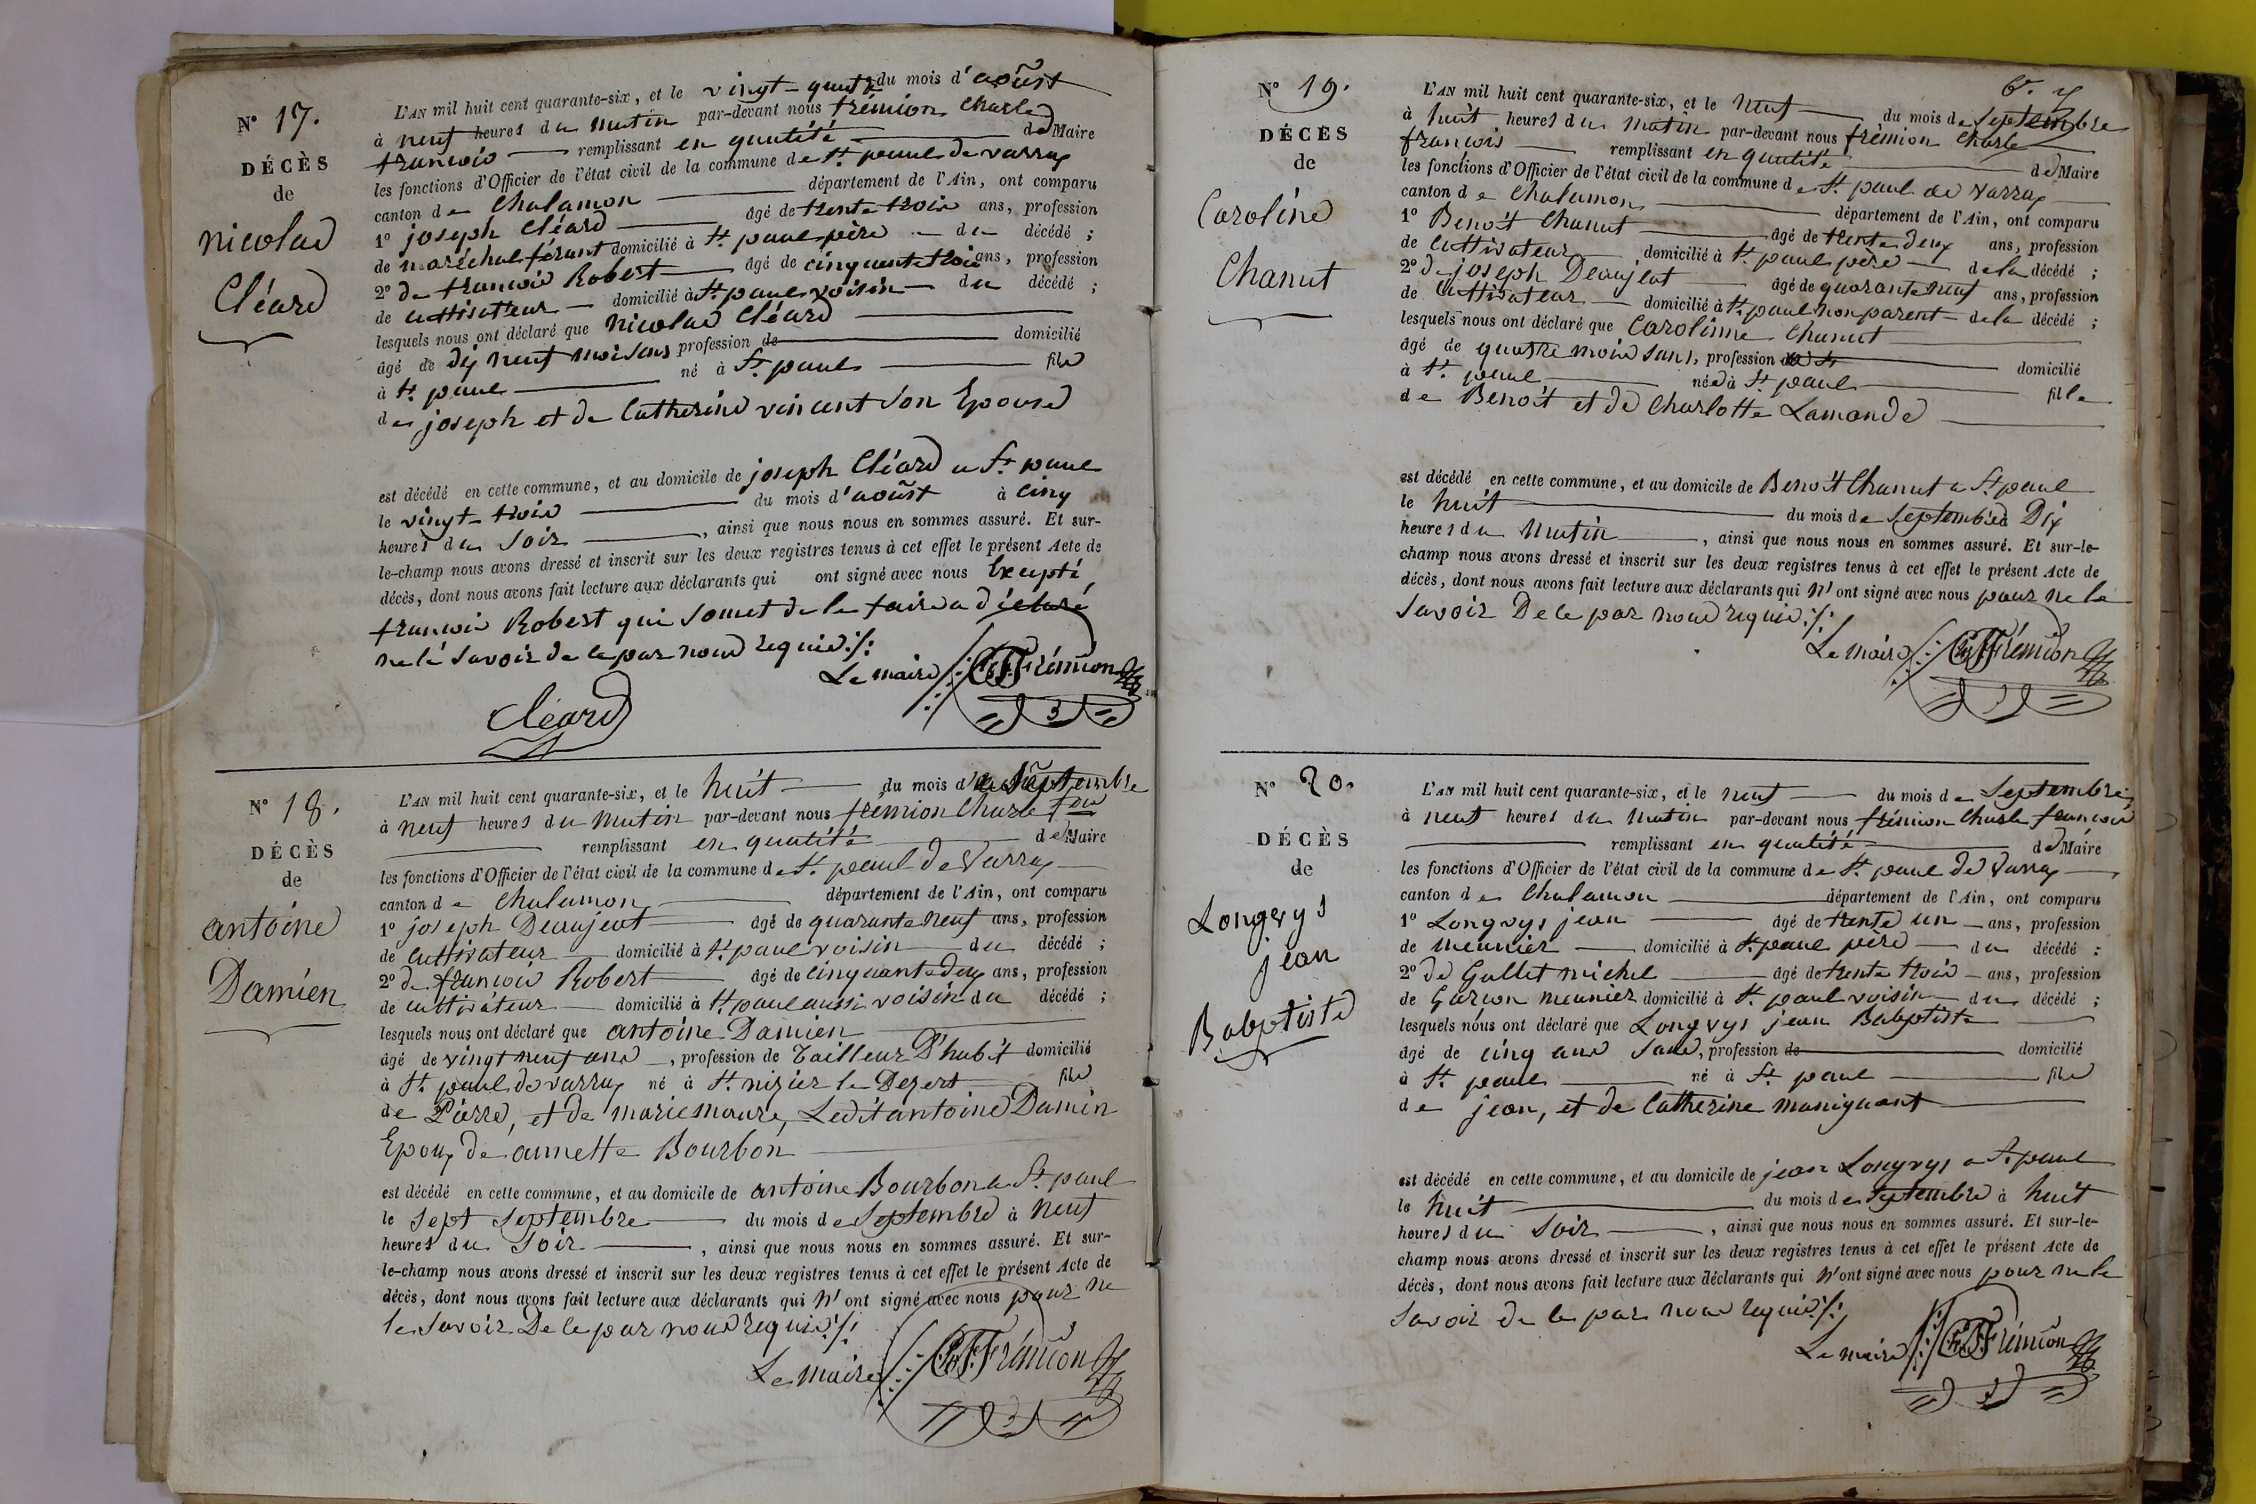 N° 17.
DÉCÈS
de
nicolas
Cléard
L'AN mil huit cent quarante-six, et le vingt-quatre du mois d'aoûst
à neuf heures du matin par-devant nous frémion Charles
francois remplissant en qualité de Maire
les fonctions d'Officier de l'état civil de la commune de St. paul de varrax
canton de Chalamon département de l'Ain, ont comparu
1° joseph Cléard âgé de trente trois ans, profession
de maréchal férant domicilié à St. paul père du décédé ;
2° de francois Robert âgé de cinquante trois ans, profession
de cultivateur domicilié à St. paul voisin du décédé ;
lesquels nous ont déclaré que nicolas Cléard
âgé de dix neuf mois sans profession de domicilié
à St. paul né à St. paul fils
de joseph et de Catherine vincent son Epouse
est décédé en cette commune, et au domicile de joseph Cléard a St. paul
le vingt-trois du mois d'aoûst à cinq
heures du soir, ainsi que nous nous en sommes assuré. Et sur-
le-champ nous avons dressé et inscrit sur les deux registres tenus à cet effet le présent Acte de
décès, dont nous avons fait lecture aux déclarants qui ont signé avec nous Excepté,
francois Robert qui somet de le faire a déclaré
ne lé savoir de ce par nous requis ./.
Le maire Ch F Frémion
Cléard
N° 18.
DÉCÈS
de
antoine
Damien
L'AN mil huit cent quarante-six, et le huit du mois de Septembre
à neuf heures du matin par-devant nous frémion Charle fois
remplissant en qualité de Maire
les fonctions d'Officier de l'état civil de la commune de St. paul de Varrax
canton de Chalamon département de l'Ain, ont comparu
1° joseph Deaujeat âgé de quarante neuf ans, profession
de Cultivateur domicilié à St. paul voisin du décédé ;
2° de francois Robert âgé de cinquante deux ans, profession
de cultivateur domicilié à St. paul aussi voisin du décédé ;
lesquels nous ont déclaré que antoine Damien
âgé de vingt neuf ans, profession de Tailleur D'habit domicilié
à St. paul de varrax né à St. nizier le Dezert fils
de Pierre, et de marie maure, Ledit antoine Damin
Epoux de annette Bourbon
est décédé en cette commune, et au domicile de antoine Bourbon a St. paul
le sept septembre du mois de Septembre à neuf
heures du soir, ainsi que nous nous en sommes assuré. Et sur-
le-champ nous avons dressé et inscrit sur les deux registres tenus à cet effet le présent Acte de
décès, dont nous avons fait lecture aux déclarants qui n'ont signé avec nous pour ne
le savoir De ce par nous requis ./.
Le maire Ch F Frémion
N° 19.
DÉCÈS
de
Caroline
Chanut
L'AN mil huit cent quarante-six, et le neuf du mois de Septembre
à huit heures du matin par-devant nous frémion Charle
francois remplissant en qualité de Maire
les fonctions d'Officier de l'état civil de la commune de St. paul de varrax
canton de Chalamon département de l'Ain, ont comparu
1° Benoît Chanut âgé de trente deux ans, profession
de Cultivateur domicilié à St. paul père de la décédé ;
2° de joseph Deaujeat âgé de quarante neuf ans, profession
de Cultivateur domicilié à St. paul non parent de la décédé ;
lesquels nous ont déclaré que Carolinne Chanut
âgé de quatre mois sans, profession domicilié
à St. paul née à St. paul fille
de Benoît et de Charlotte Lamande
est décédé en cette commune, et au domicile de Benoît Chanut a St. paul
le huit du mois de septembre à Dix
heures du matin, ainsi que nous nous en sommes assuré. Et sur-le-
champ nous avons dressé et inscrit sur les deux registres tenus à cet effet le présent Acte de
décès, dont nous avons fait lecture aux déclarants qui n'ont signé avec nous pour ne le
savoir De ce par nous requis ./.
Le maire Ch F Frémion
N° 20.
DÉCÈS
de
Longvys
jean
Babptiste
L'AN mil huit cent quarante-six, et le neuf du mois de Septembre
à neuf heures du matin par-devant nous frémion Charle francois
remplissant en qualité de Maire
les fonctions d'Officier de l'état civil de la commune de St. paul de Varrax
canton de Chalamon département de l'Ain, ont comparu
1° Longvys jean âgé de trente un ans, profession
de meunier domicilié à St. paul père du décédé ;
2° de Gallet michel âgé de trente trois ans, profession
de Garcon meunier domicilié à St. paul voisin du décédé ;
lesquels nous ont déclaré que Longvys jean Babptiste
âgé de cinq ans sans, profession de domicilié
à St. paul né à St. paul fils
de jean, et de Catherine maniguant
est décédé en cette commune, et au domicile de jean Longvys a St. paul
le huit du mois de septembre à huit
heures du soir, ainsi que nous nous en sommes assuré. Et sur-le-
champ nous avons dressé et inscrit sur les deux registres tenus à cet effet le présent Acte de
décès, dont nous avons fait lecture aux déclarants qui n'ont signé avec nous pour ne le
savoir de ce par nous requis ./.
Le maire Ch F Frémion